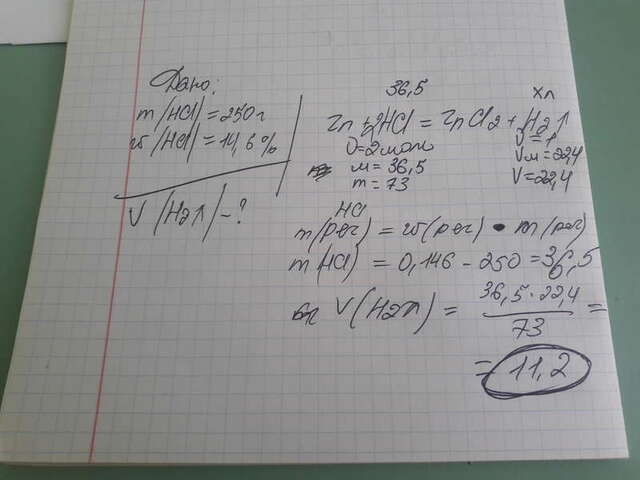 Дано:
m(HCl) = 250г
w(HCl) = 14,6%
V(H2↑) - ?
36,5
xл
Zn + 2HCl = ZnCl2 + H2↑
υ = 2моль
м = 36,5
m = 73
υ = 1
Vм = 22,4
V = 22,4
HCl
m(рег) = w(рег) • m(рег)
m(HCl) = 0,146 - 250 = 36,5
V(H2↑) = 36,5 · 22,4 / 73 =
= 11,2